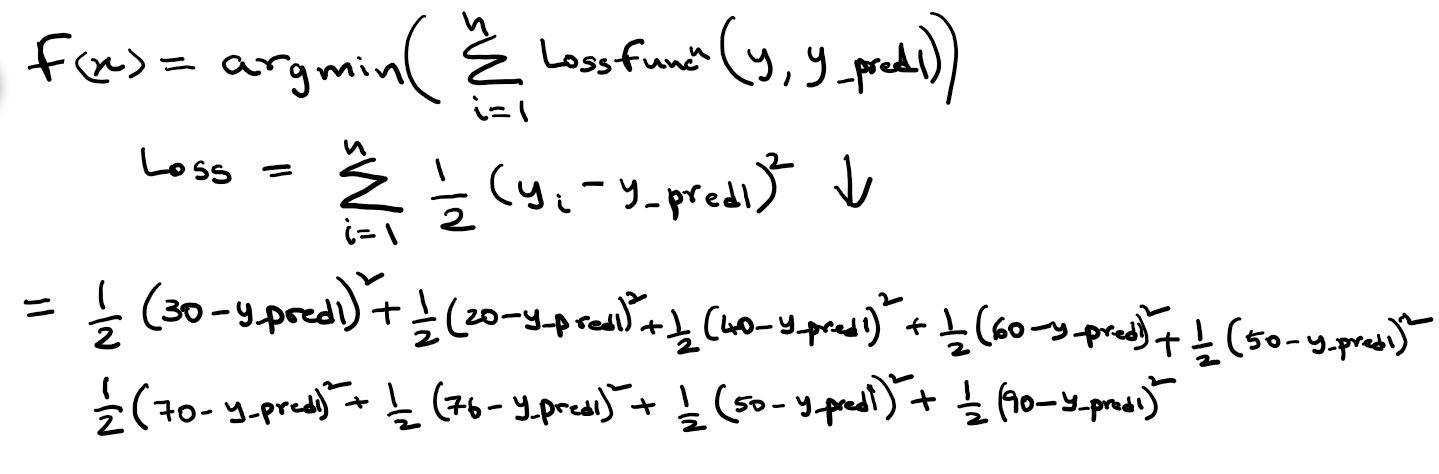 F(x) = argmin( n Σ i=1 Lossfuncⁿ(y, y_pred1))
Loss = n Σ i=1 1/2 (y_i - y_pred1)² ↓
= 1/2 (30 - y_pred1)² + 1/2 (20 - y_pred1)² + 1/2 (40 - y_pred1)² + 1/2 (60 - y_pred1)² + 1/2 (50 - y_pred1)²
1/2 (70 - y_pred1)² + 1/2 (76 - y_pred1)² + 1/2 (50 - y_pred1)² + 1/2 (90 - y_pred1)²